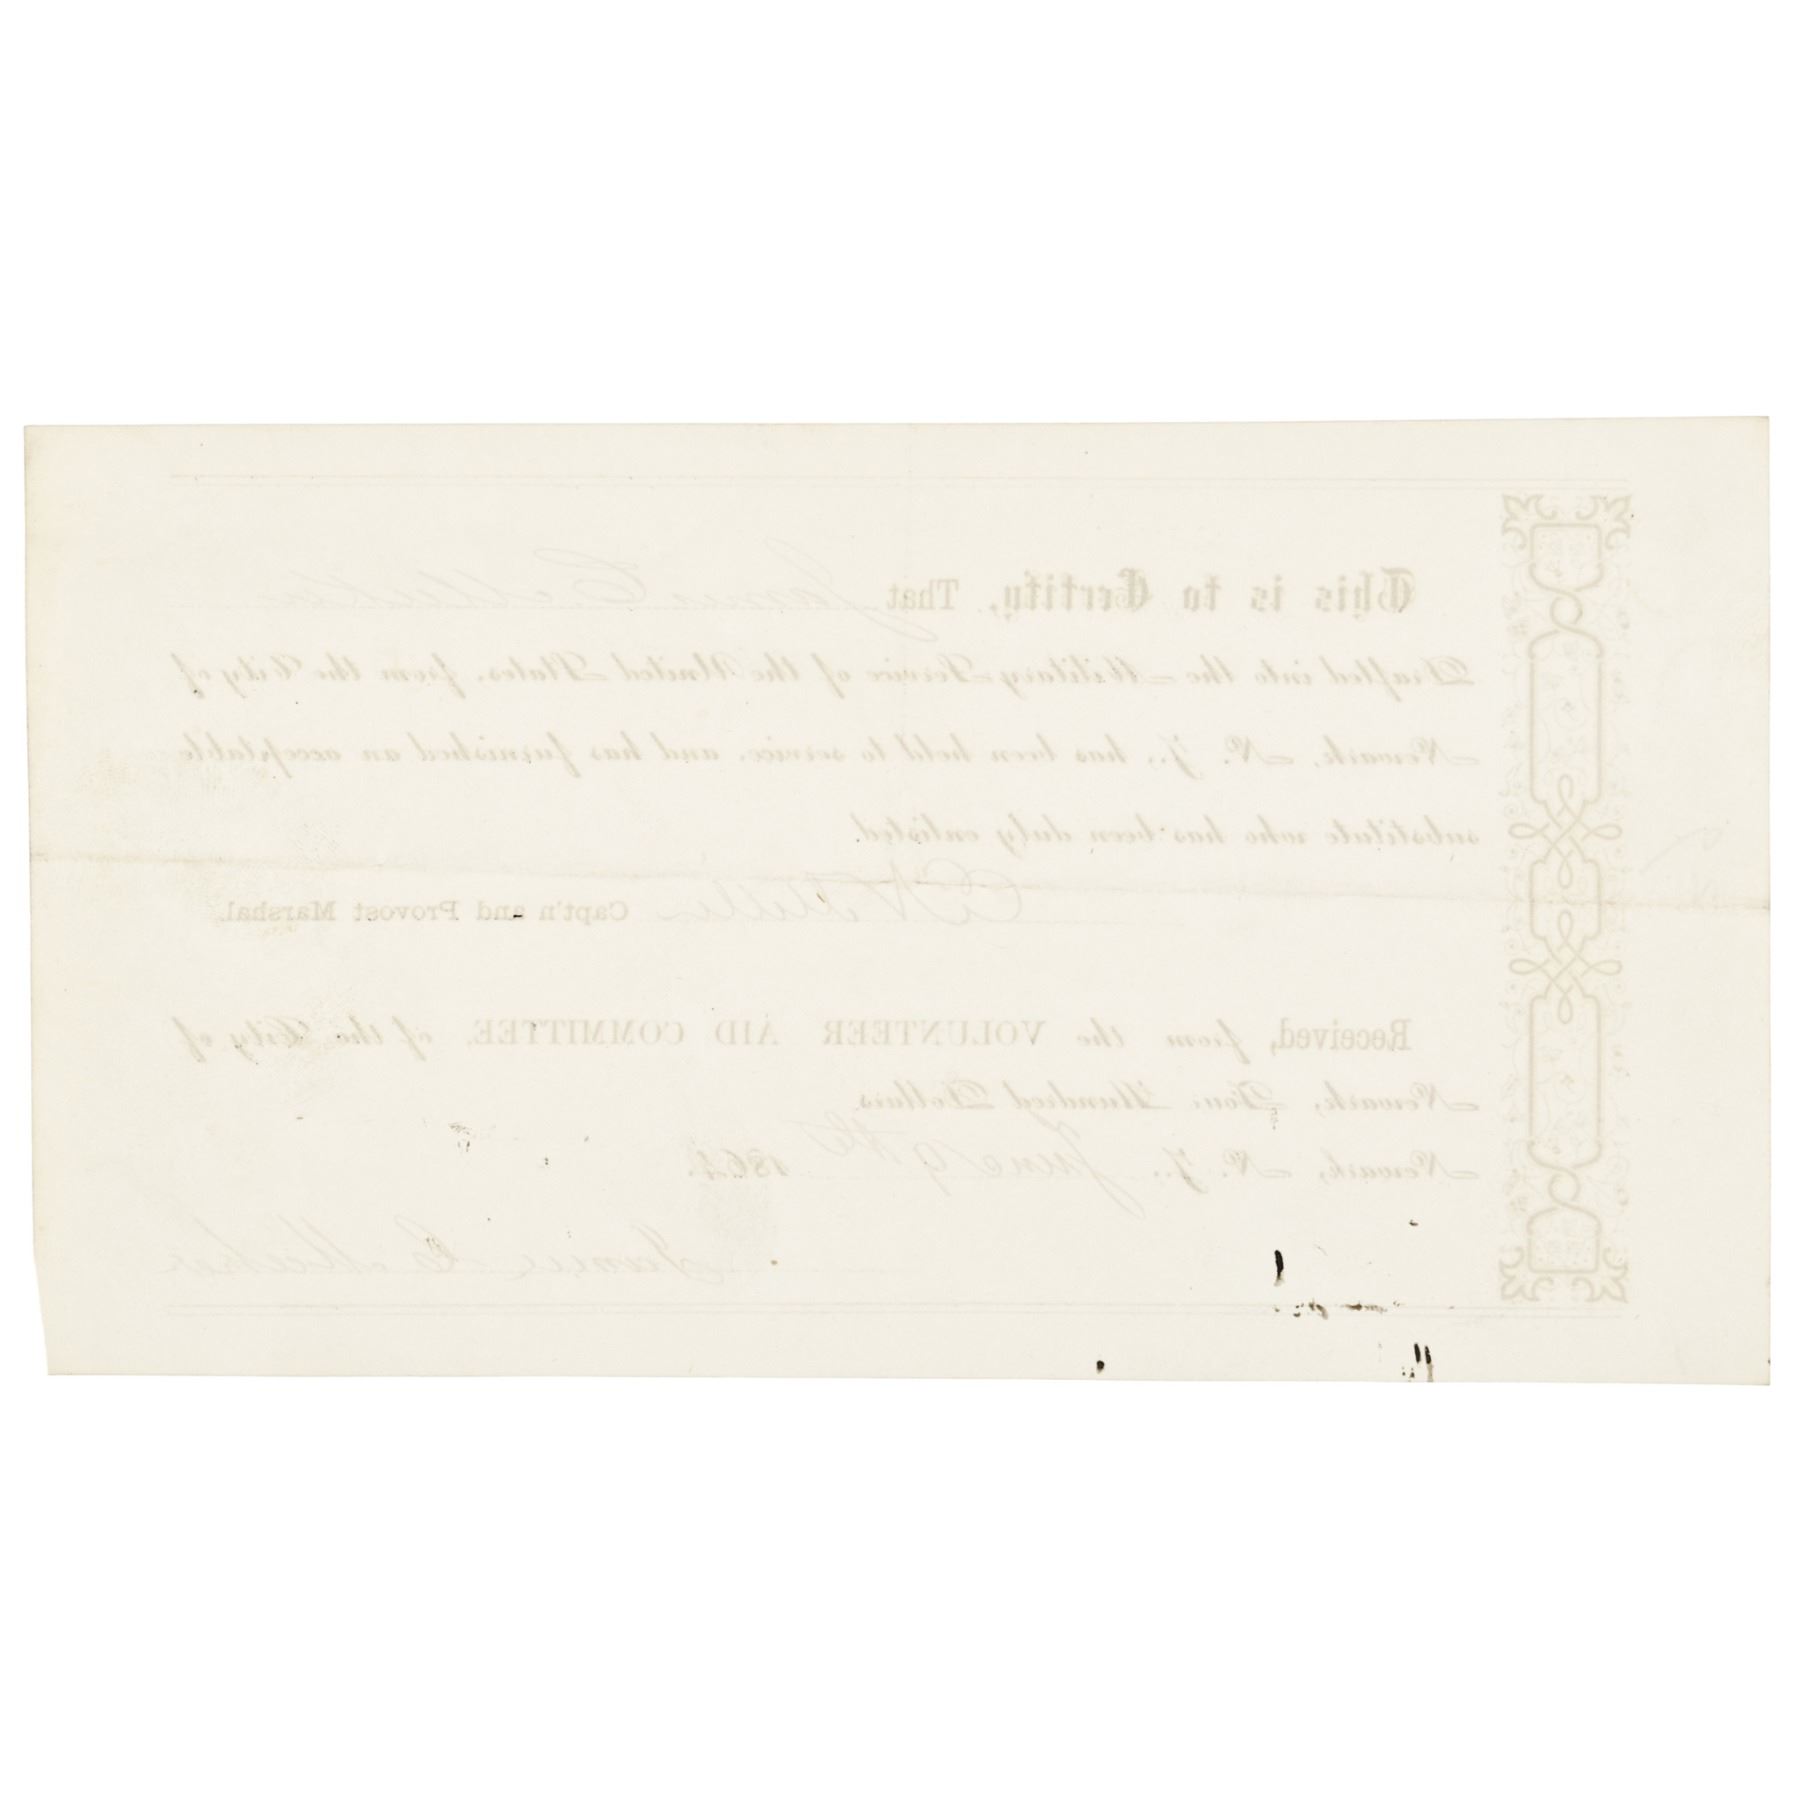 This is to Certify, That James C. Meeker
Drafted into the Military Service of the United States, from the City of
Newark, N. J., has been held to service, and has furnished an acceptable
substitute who has been duly enlisted.
Miller Capt'n and Provost Marshal.
Received, from the VOLUNTEER AID COMMITTEE, of the City of
Newark, Four Hundred Dollars.
Newark, N. J., June 9th 1864.
James C. Meeker